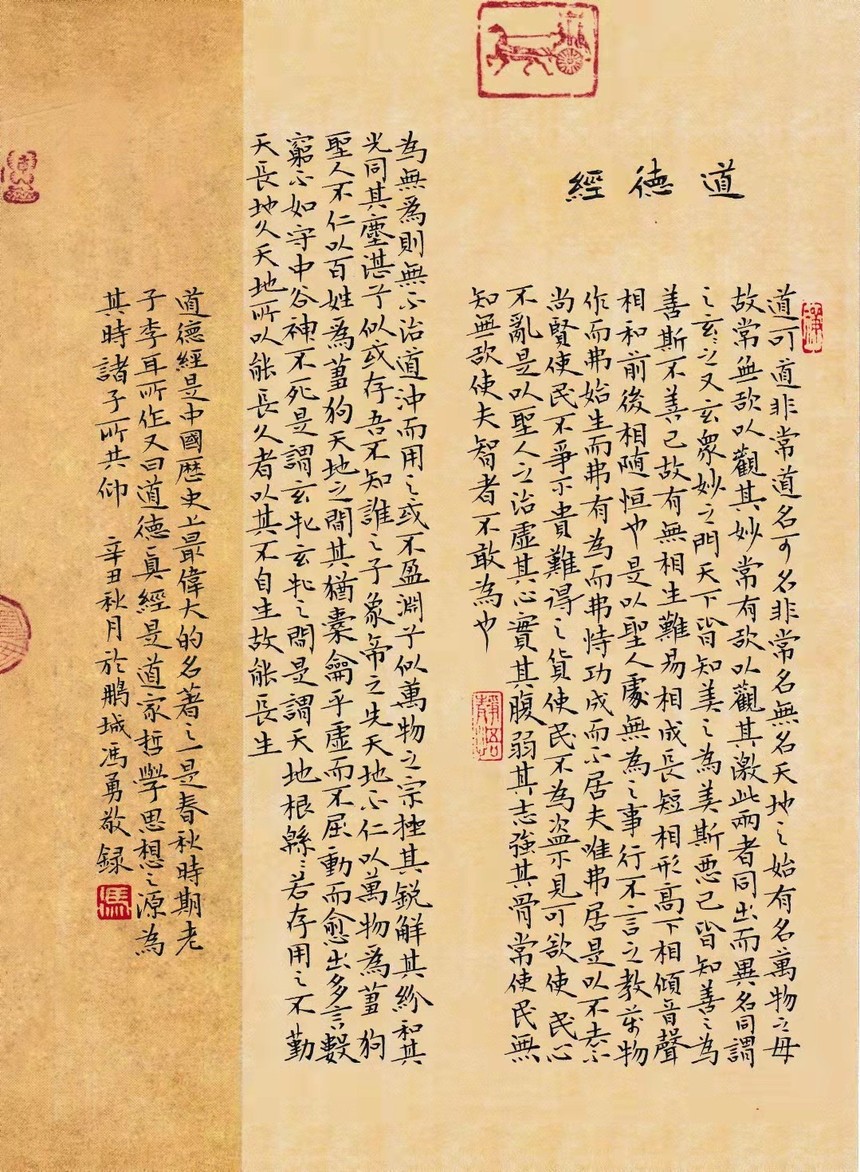 道德經
道可道非常道名可名非常名無名天地之始有名萬物之母
故常無欲以觀其妙常有欲以觀其激此兩者同出而異名同謂
之玄〻之又玄眾妙之門天下皆知美之為美斯惡已皆知善之為
善斯不善已故有無相生難易相成長短相形高下相傾音聲
相和前後相随恒也是以聖人處無為之事行不言之教萬物
作而弗始生而弗有為而弗恃功成而不居夫唯弗居是以不去不
尚賢使民不爭不貴難得之貨使民不為盜不見可欲使民心
不亂是以聖人之治虛其心實其腹弱其志強其骨常使民無
知無欲使夫智者不敢為也
為無為則無不治道沖而用之或不盈淵乎似萬物之宗挫其銳解其紛和其
光同其塵湛乎似或存吾不知誰之子象帝之先天地不仁以萬物為芻狗
聖人不仁以百姓為芻狗天地之間其猶橐龠乎虛而不屈動而愈出多言數
窮不如守中谷神不死是謂玄牝玄牝之間是謂天地根緜〻若存用之不勤
天長地久天地所以能長久者以其不自生故能長生
道德經是中國歷史上最偉大的名著之一是春秋時期老
子李耳所作又曰道德真經是道家哲學思想之源為
其時諸子所共仰 辛丑秋月於鵬城馮勇敬録
馮